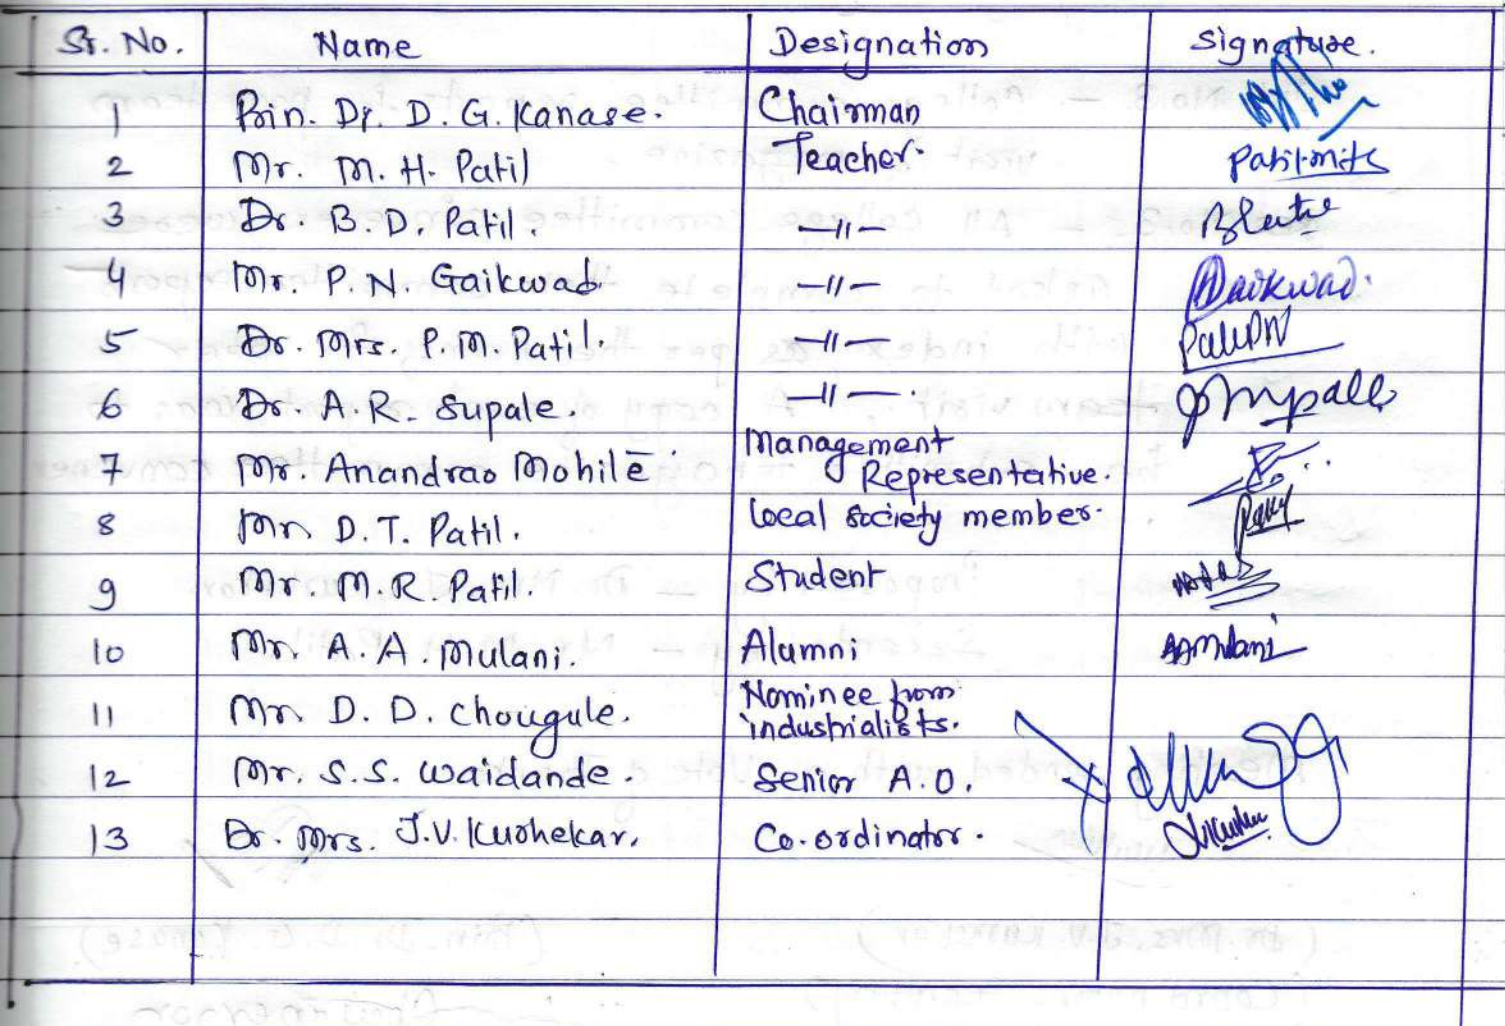 Sr. No. Name Designation Signature.
1 Prin. Dr. D. G. Kanase. Chairman
2 Mr. M. H. Patil Teacher.
3 Dr. B. D. Patil. —〃—
4 Mr. P. N. Gaikwad —〃—
5 Dr. Mrs. P. M. Patil. —〃—
6 Dr. A. R. Supale. —〃—.
7 Mr. Anandrao Mohite Management
Representative.
8 Mr. D. T. Patil. Local society member.
9 Mr. M. R. Patil. Student
10 Mr. A. A. Mulani. Alumni AAMulani
11 Mr. D. D. Chougule. Nominee from
industrialists.
12 Mr. S. S. Waidande. Senior A.O.
13 Dr. Mrs. J. V. Kurhekar. Co-ordinator.